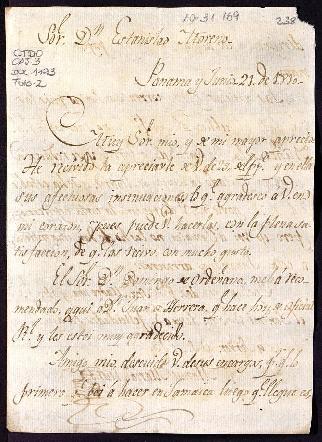 20-31 169
238
COTDO
CAJ-3
DOC 1173
Folio-2
Sor. Dn Estanislao Moreno
Panama y Junio 21. de 1810
Muy Sor. mio, y de mi mayor aprecio
He recivido la apreciable de V. de 22. de y en ella
sus afectuosas insinuaciones, lo q.e agradezco a V. en
mi corazon, pues puede V. hacerlas, con la plena sa-
tisfaccion, de q.e las recivo con mucho gusto.
El Sor. Dn Domingo de Ordeñana, me ha reco-
mendado, aqui a Dn Juan de Herrera, q.e hace hoy de oficial
Rl. y les estoy muy agradecido.
Amigo mio, descuide V. de sus encargos, q.e lo
primero voi a hacer en Jamaica luego q.e llegue es